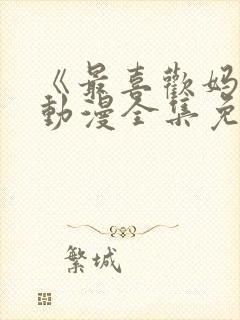 《最喜歡媽
動漫全集免
繁城